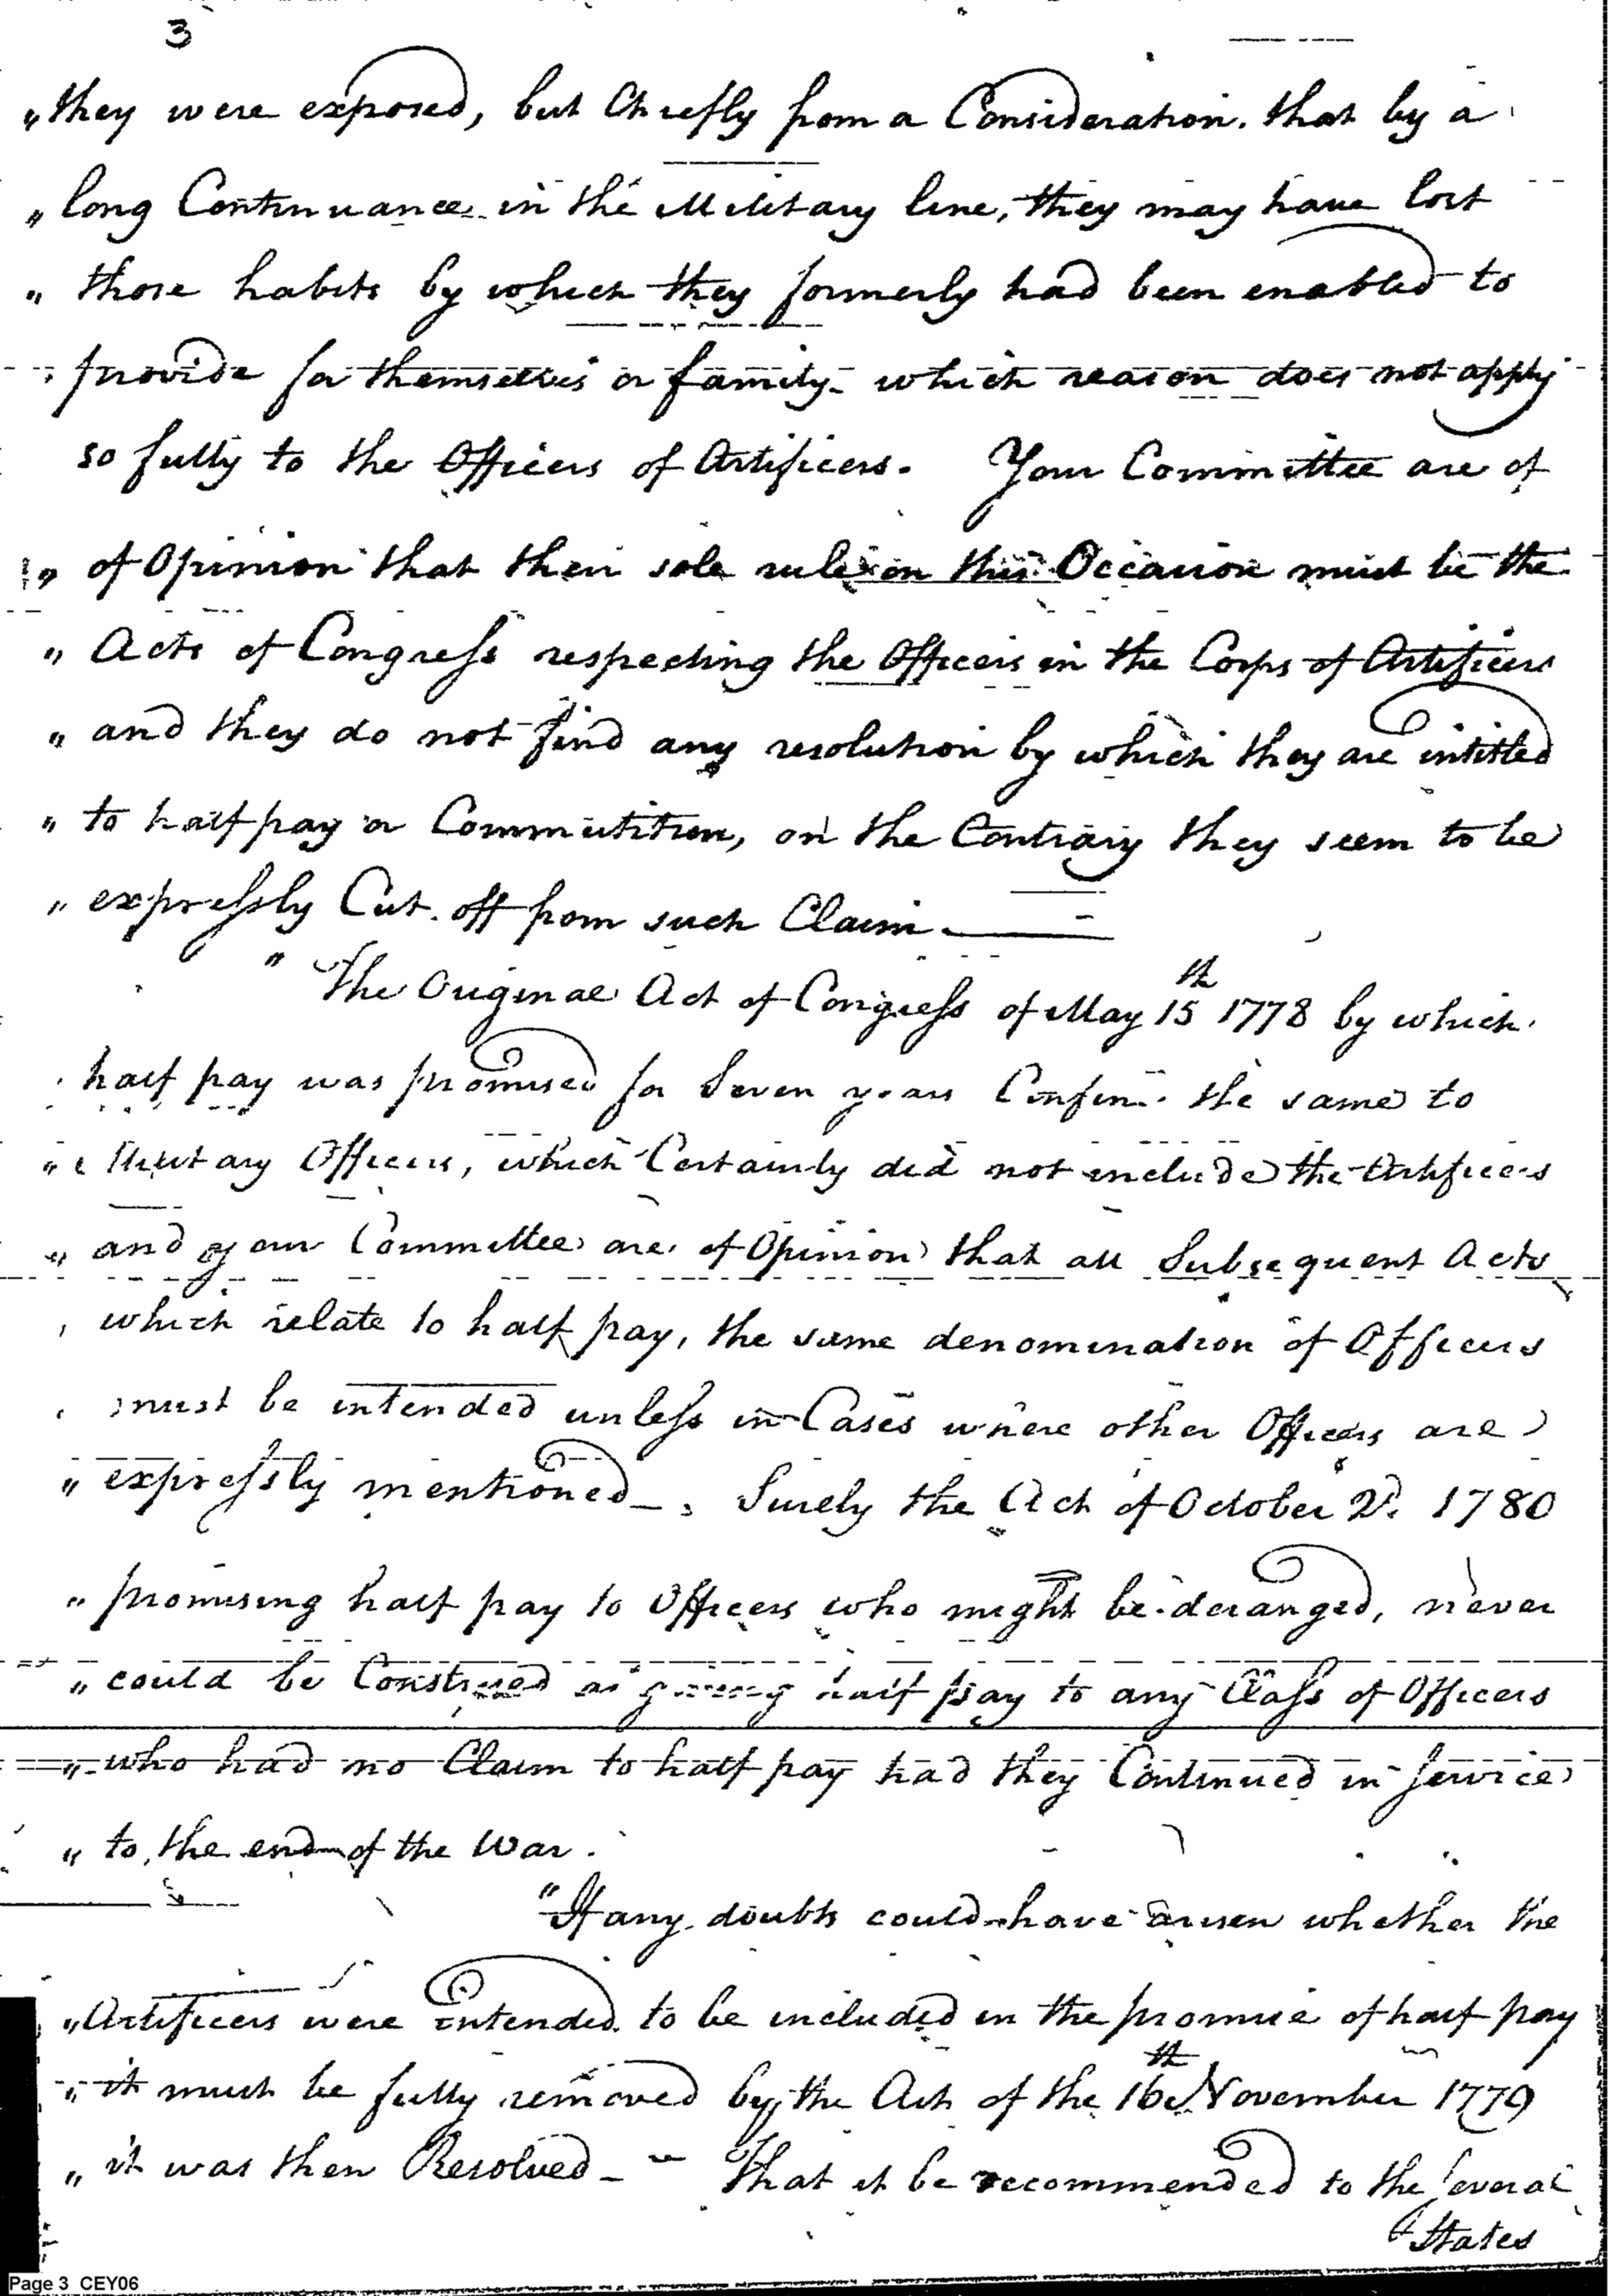 3
"they were exposed, but Chiefly from a Consideration. that by a
" long Continuance in the Military line, they may have lost
" those habits by which they formerly had been enabled to
provide for themselves or family. which reason does not apply
so fully to the Officers of Artificers. Your Committee are of
" of Opinion that their sole rule on this Occasion must be the
" Acts of Congress respecting the Officers in the Corps of Artificers
" and they do not find any resolution by which they are intitled
" to half pay or Commutition, on the Contrary they seem to be
" expressly Cut off from such Claim.
" The Original Act of Congress of May 15th 1778 by which
half pay was promised for Seven years the same to
" Military Officers, which Certainly did not include the Artificers
" and your Committee are of Opinion that all Subsequent Acts
which relate to half pay, the same denomination of Officers
must be intended unless in Cases where other Officers are
" expressly mentioned. Surely the Act of October 2d. 1780
" promising half pay to Officers who might be deranged, never
" could be Construed as giving half pay to any Class of Officers
" who had no Claim to half pay had they Continued in Service
" to the end of the War.
"If any doubts could have arisen whether the
"Artificers were intended to be included in the promise of half pay
" it must be fully removed by the Act of the 16th November 1779
" it was then Resolved - " That it be recommended to the Several
States
Page 3 CEY06